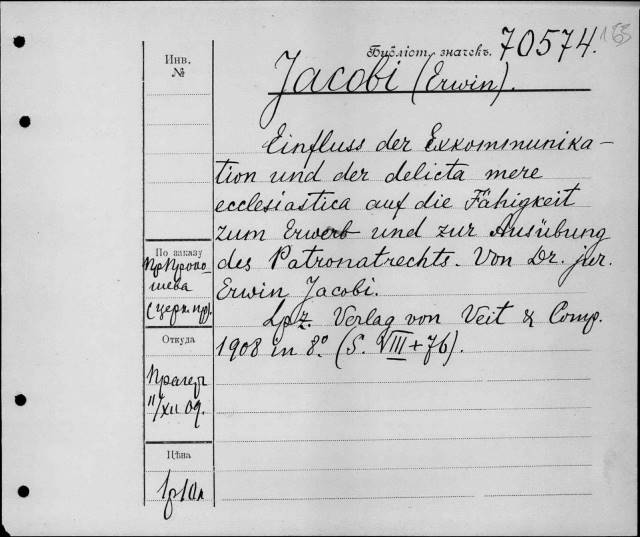 Библіот. значекъ. 70574.
155
Инв.
№
Jacobi (Erwin).
Einfluss der Exkommunika-
tion und der delicta mere
ecclesiastica auf die Fähigkeit
zum Erwerb und zur Ausübung
des Patronatrechts. Von Dr. jur.
Erwin Jacobi.
Lpz. Verlag von Veit & Comp.
1908 in 8° (S. VIII + 76).
По заказу
Пр Проко-
шева
(церк. пр).
Откуда
Прагеръ
11/XII 09.
Цѣна
1р10к